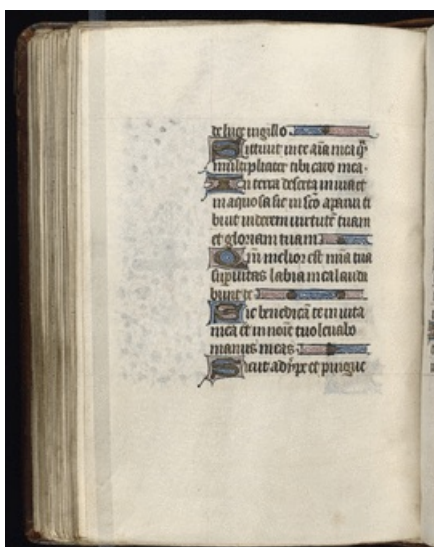 de luce vigilo
Sitiuit in te aīa mea q̄
multipliciter tibi caro mea
In terra deserta inuia et
inaquosa sic in sc̄o aparui ti
bi ut viderem uirtutē tuam
et gloriam tuam
Qm̄ melior est mīa tua
sup uitas labia mea laudi
bunt te
Sic benedicā te in uita
mea et in noīe tuo leuabo
manus meas
Sicut adype et pingue